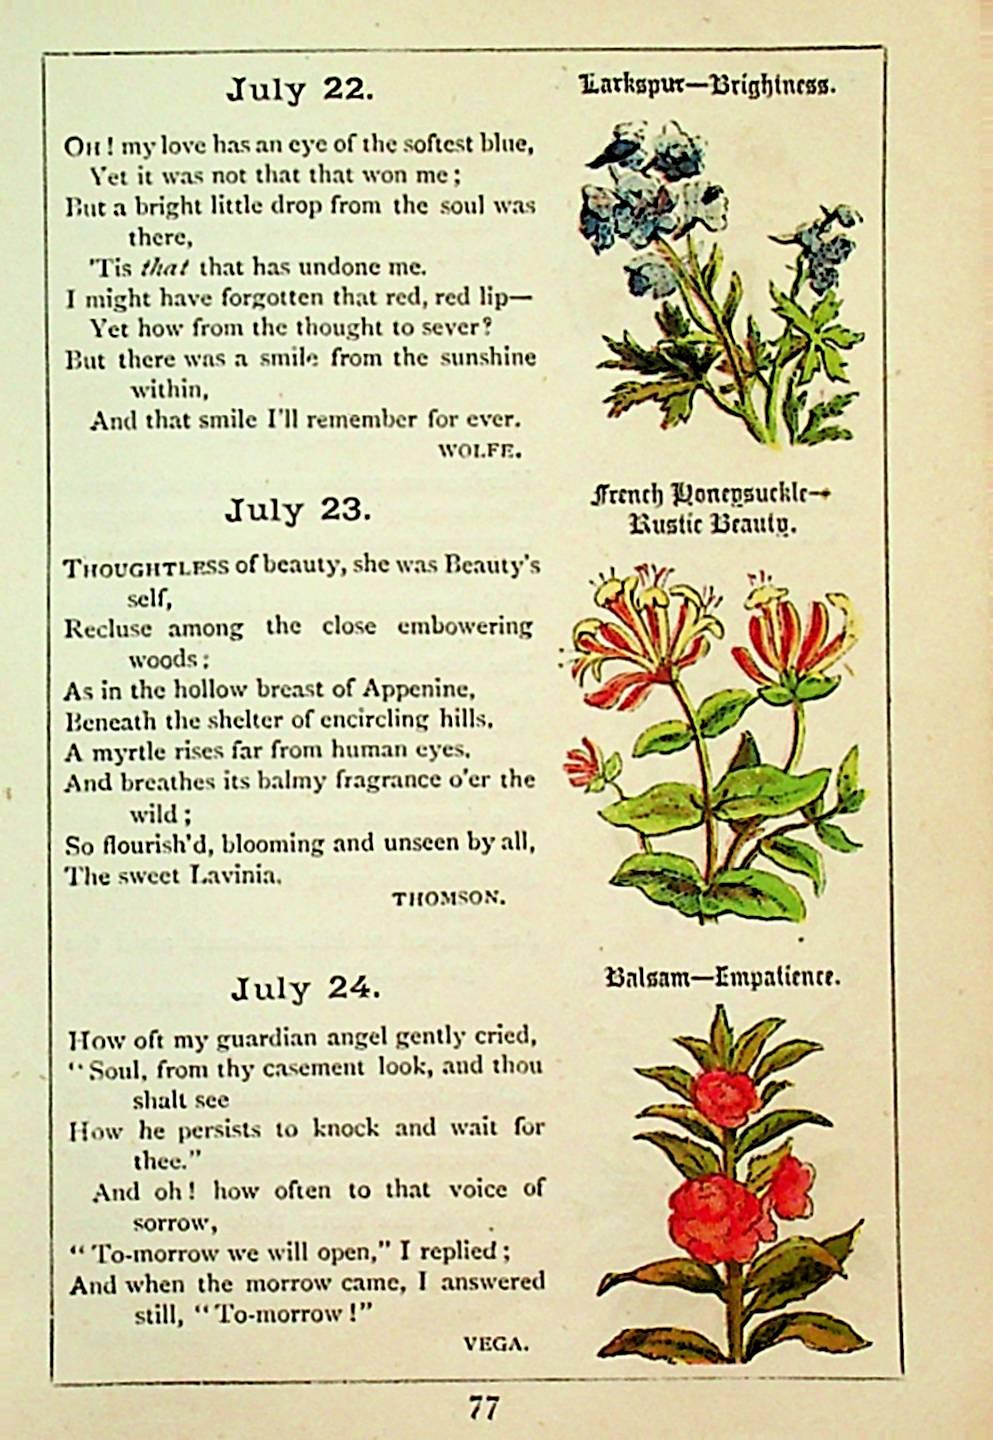 July 22.
Larkspur—Brightness.
OH! my love has an eye of the softest blue,
Yet it was not that that won me;
But a bright little drop from the soul was
there,
'Tis that that has undone me.
I might have forgotten that red, red lip—
Yet how from the thought to sever?
But there was a smile from the sunshine
within,
And that smile I'll remember for ever.
WOLFE.
July 23.
French Honeysuckle—
Rustic Beauty.
THOUGHTLESS of beauty, she was Beauty's
self,
Recluse among the close embowering
woods:
As in the hollow breast of Appenine,
Beneath the shelter of encircling hills,
A myrtle rises far from human eyes,
And breathes its balmy fragrance o'er the
wild;
So flourish'd, blooming and unseen by all,
The sweet Lavinia.
THOMSON.
July 24.
Balsam—Empatience.
How oft my guardian angel gently cried,
"Soul, from thy casement look, and thou
shalt see
How he persists to knock and wait for
thee."
And oh! how often to that voice of
sorrow,
"To-morrow we will open," I replied;
And when the morrow came, I answered
still, "To-morrow!"
VEGA.
77